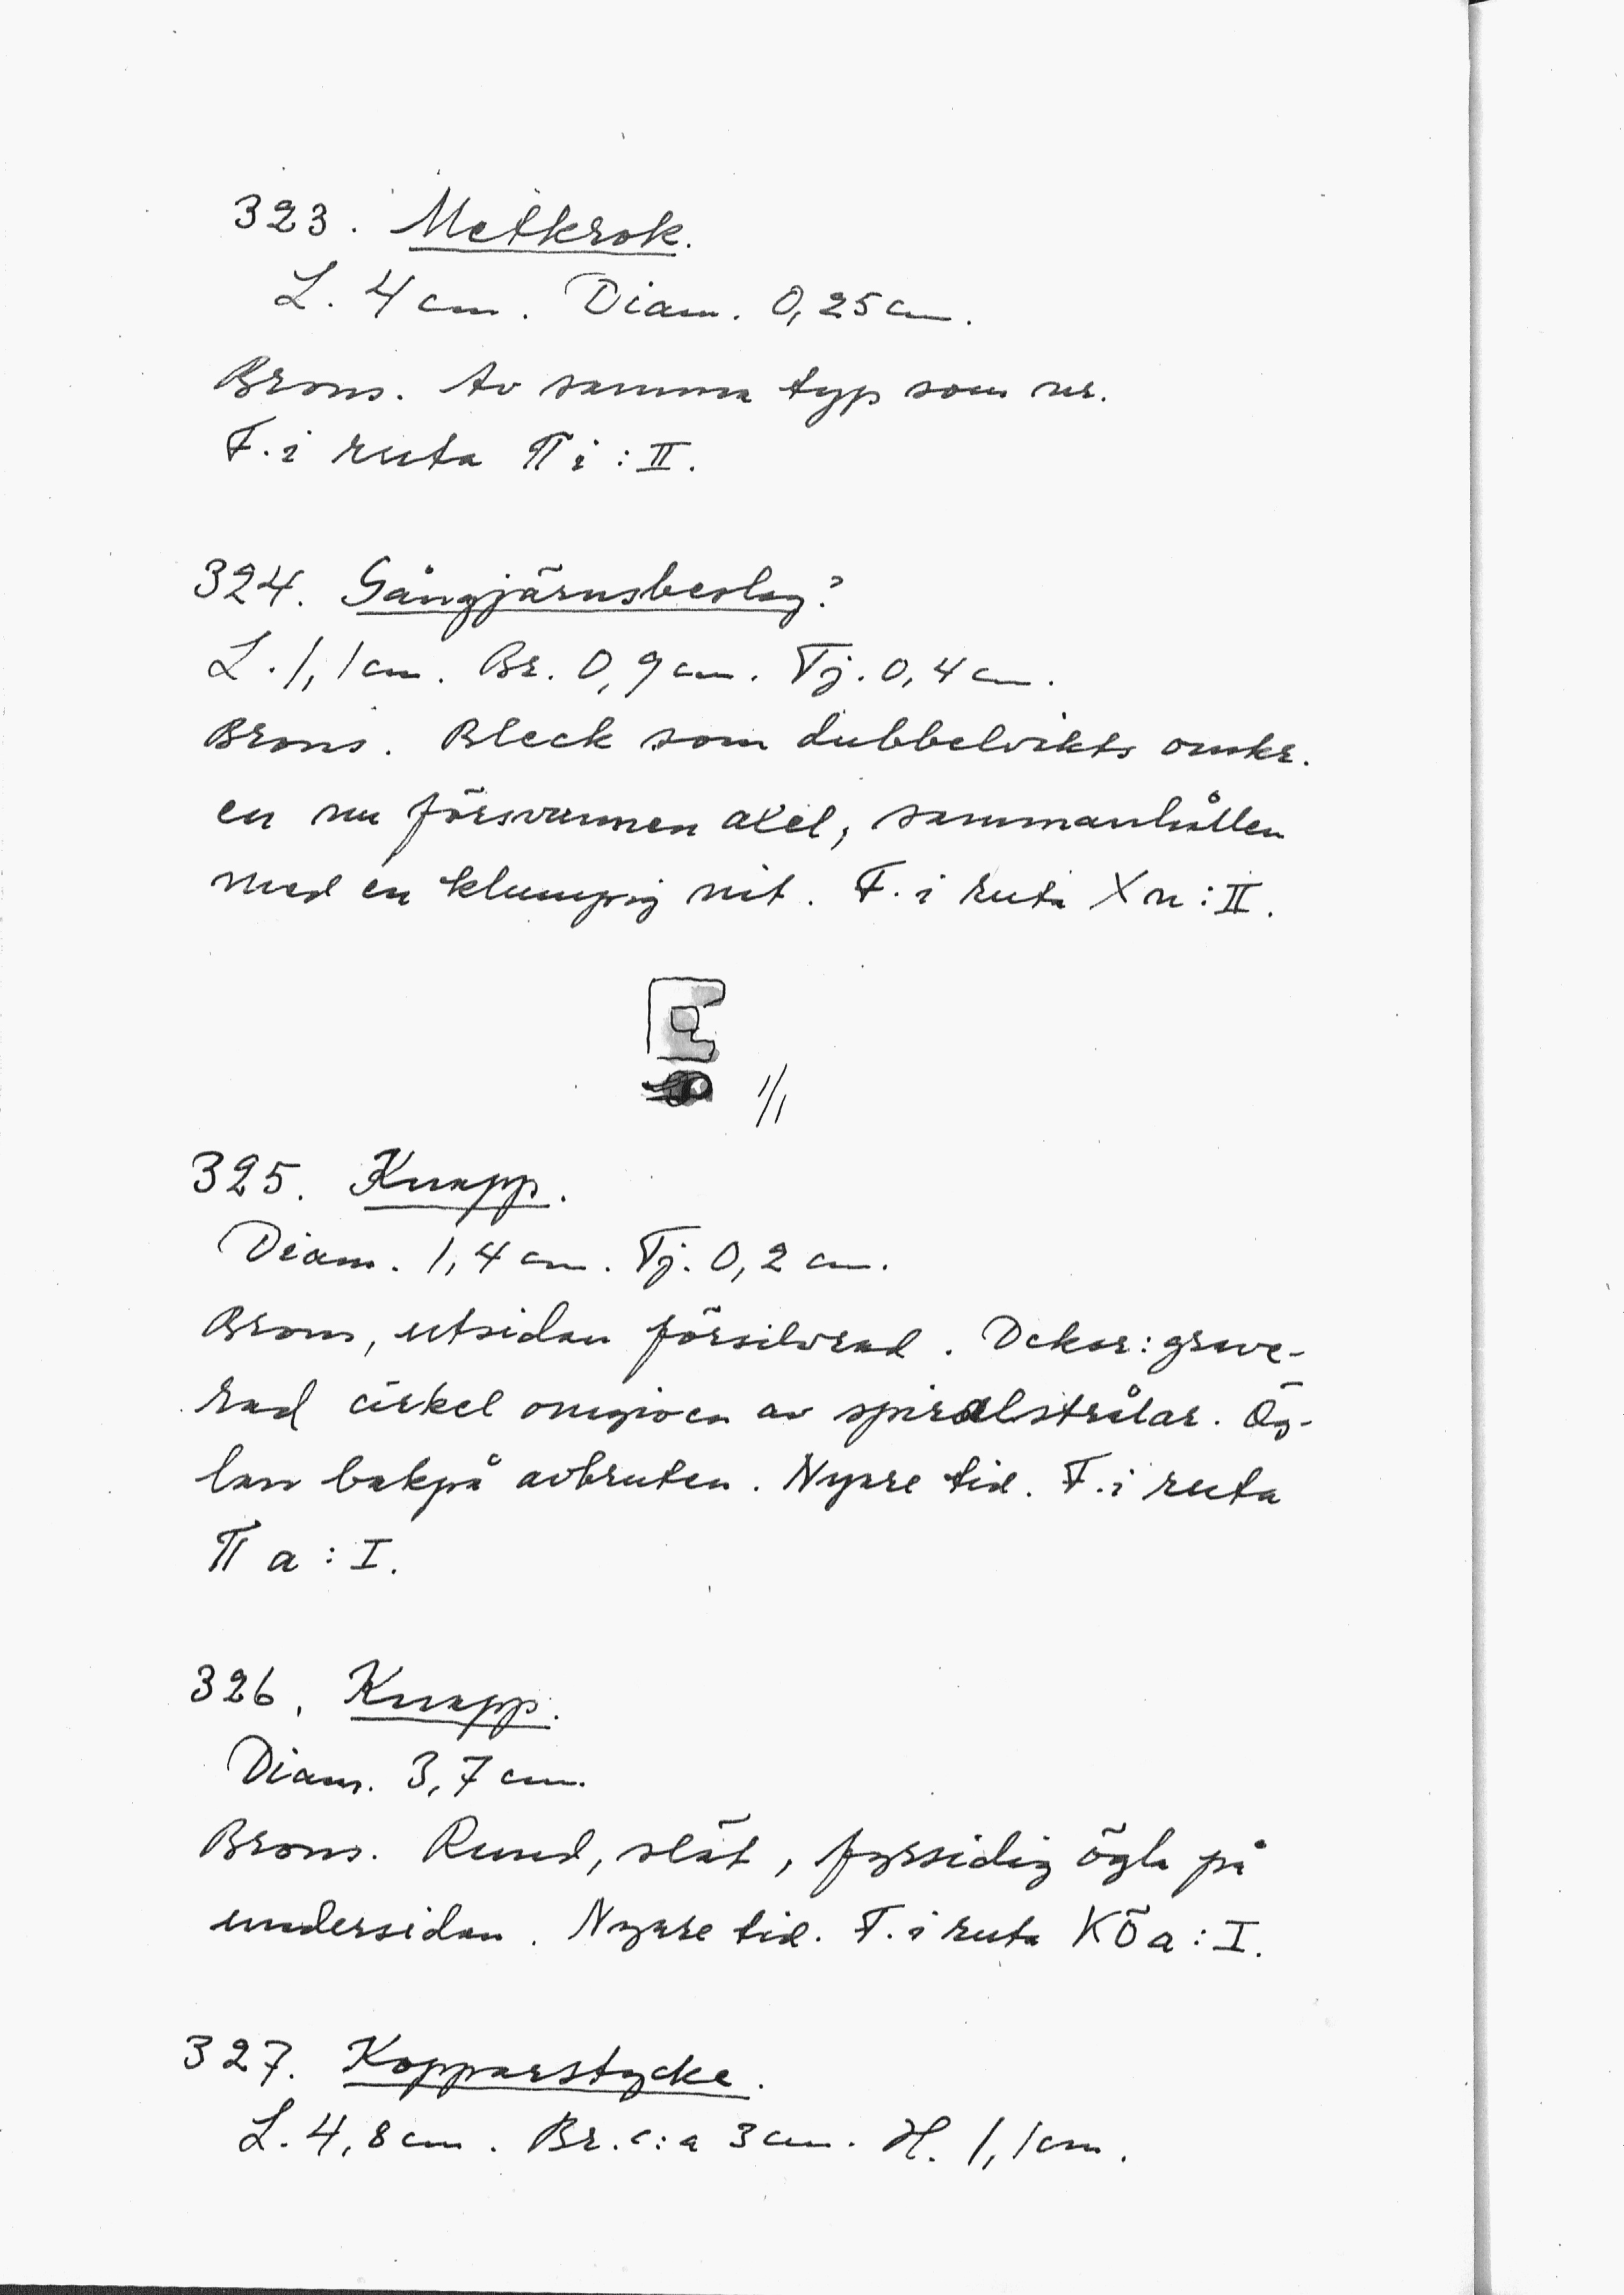 323. Metkrok.
L. 4 cm. Diam. 0,25 cm.
Brons. Av samma typ som nr.
F. i ruta Π i : II.
324. Gångjärnsbeslag?
L. 1,1 cm. Br. 0,9 cm. Tj. 0,4 cm.
Brons. Bleck som dubbelvikts omkr.
en nu försvunnen axel, sammanhållen
med en klumpig nit. F. i ruta X n : II.
1/1
325. Knapp.
Diam. 1,4 cm. Tj. 0,2 cm.
Brons, utsidan försilvrad. Dekor: grave-
rad cirkel omgiven av spiralstrålar. Ög-
lan bakpå avbruten. Nyare tid. F. i ruta
Π a : I.
326. Knapp.
Diam. 3,7 cm.
Brons. Rund, slät, fyrsidig ögla på
undersidan. Nyare tid. F. i ruta KÖ a : I.
327. Kopparstycke.
L. 4,8 cm. Br. c:a 3 cm. H. 1,1 cm.